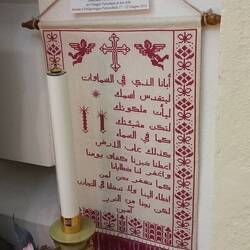 أبانا الذي في السماوات
ليتقدس اسمك
ليأت ملكوتك
لتكن مشيئتك
كما في السماء
كذلك على الارض
اعطنا خبزنا كفاف يومنا
واغفر لنا خطايانا
كما نغفر نحن لمن
اخطأ الينا ولا تدخلنا في التجارب
لكن نجنا من الشرير
آمين